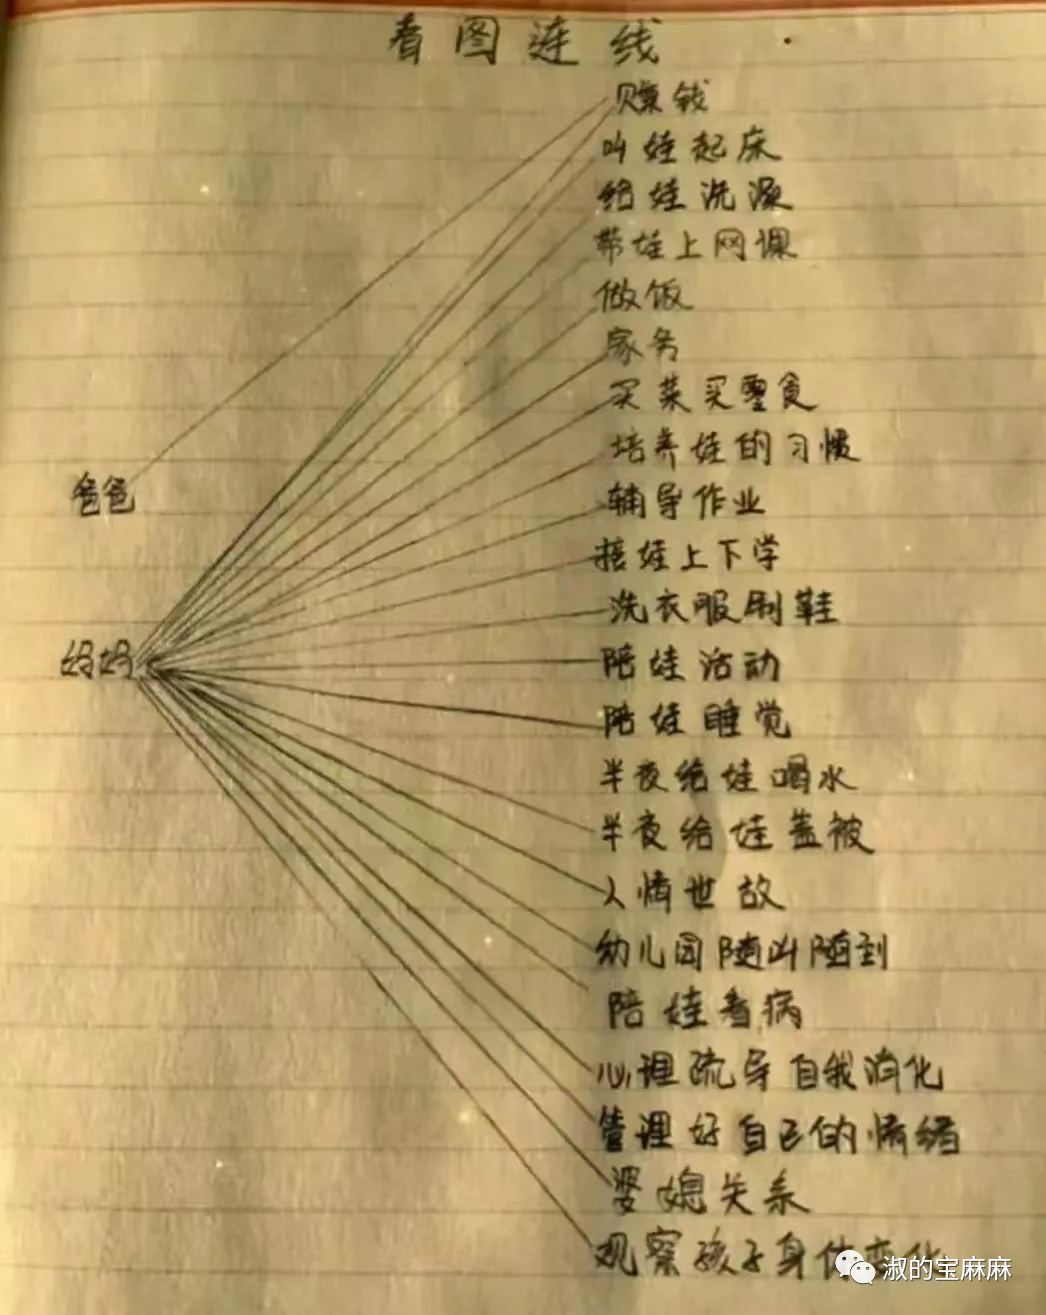 看图连线
赚钱
叫娃起床
给娃洗澡
带娃上网课
做饭
家务
买菜买零食
培养娃的习惯
爸爸
辅导作业
接娃上下学
洗衣服刷鞋
妈妈
陪娃活动
陪娃睡觉
半夜给娃喝水
半夜给娃盖被
人情世故
幼儿园随叫随到
陪娃看病
心理疏导自我消化
管理好自己的情绪
婆媳关系
观察孩子身体变化
淑的宝麻麻